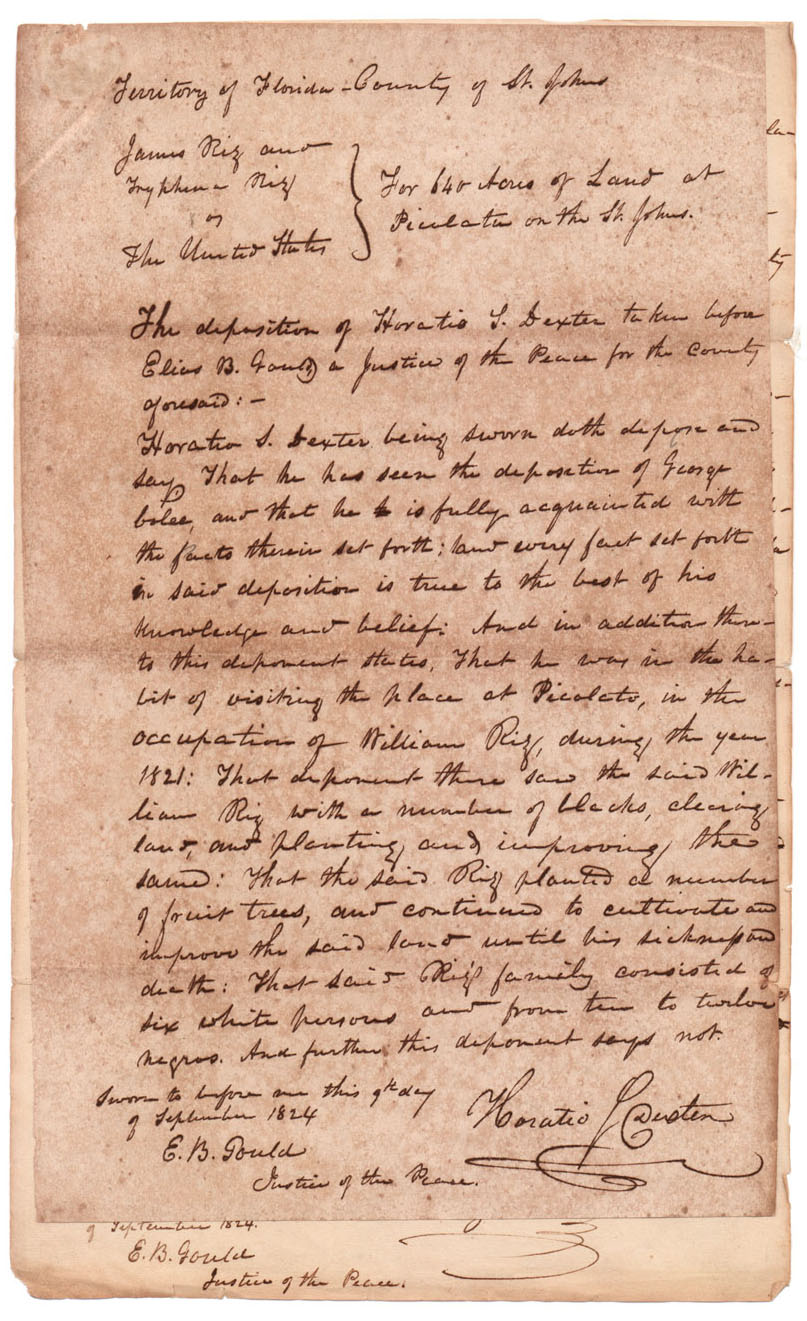 Territory of Florida - County of St. Johns
James Riz and
Tryphena Riz
vs
The United States
For 640 Acres of Land at
Picolata on the St. Johns.
The deposition of Horatio S. Dexter taken before
Elias B. Gould a Justice of the Peace for the County
aforesaid: -
Horatio S. Dexter being sworn doth depose and
say, That he has seen the deposition of George
and that he is fully acquainted with
the facts therein set forth; and every fact set forth
in said deposition is true to the best of his
knowledge and belief: And in addition there-
to this deponent states, That he was in the ha-
bit of visiting the place at Picolata, in the
occupation of William Riz, during the year
1821: That deponent there saw the said Wil-
liam Riz with a number of blacks, clearing
land, and planting and improving the
same: That the said Riz planted a number
of fruit trees, and continued to cultivate and
improve the said land until his sickness and
death: That said Riz' family consisted of
six white persons and from ten to twelve
negros. And further this deponent says not.
Sworn to before me this 9th day
of September 1824
E. B. Gould
Justice of the Peace.
Horatio S Dexter
of September 1824.
E. B. Gould
Justice of the Peace.